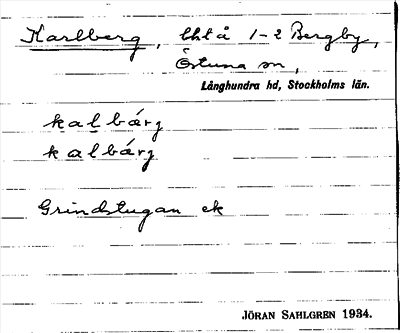 Karlberg, lht å 1-2 Bergby,
Östuna sn,
Långhundra hd, Stockholms län.
kalbárg
kalbárg
Grindstugan ek
JÖRAN SAHLGREN 1934.